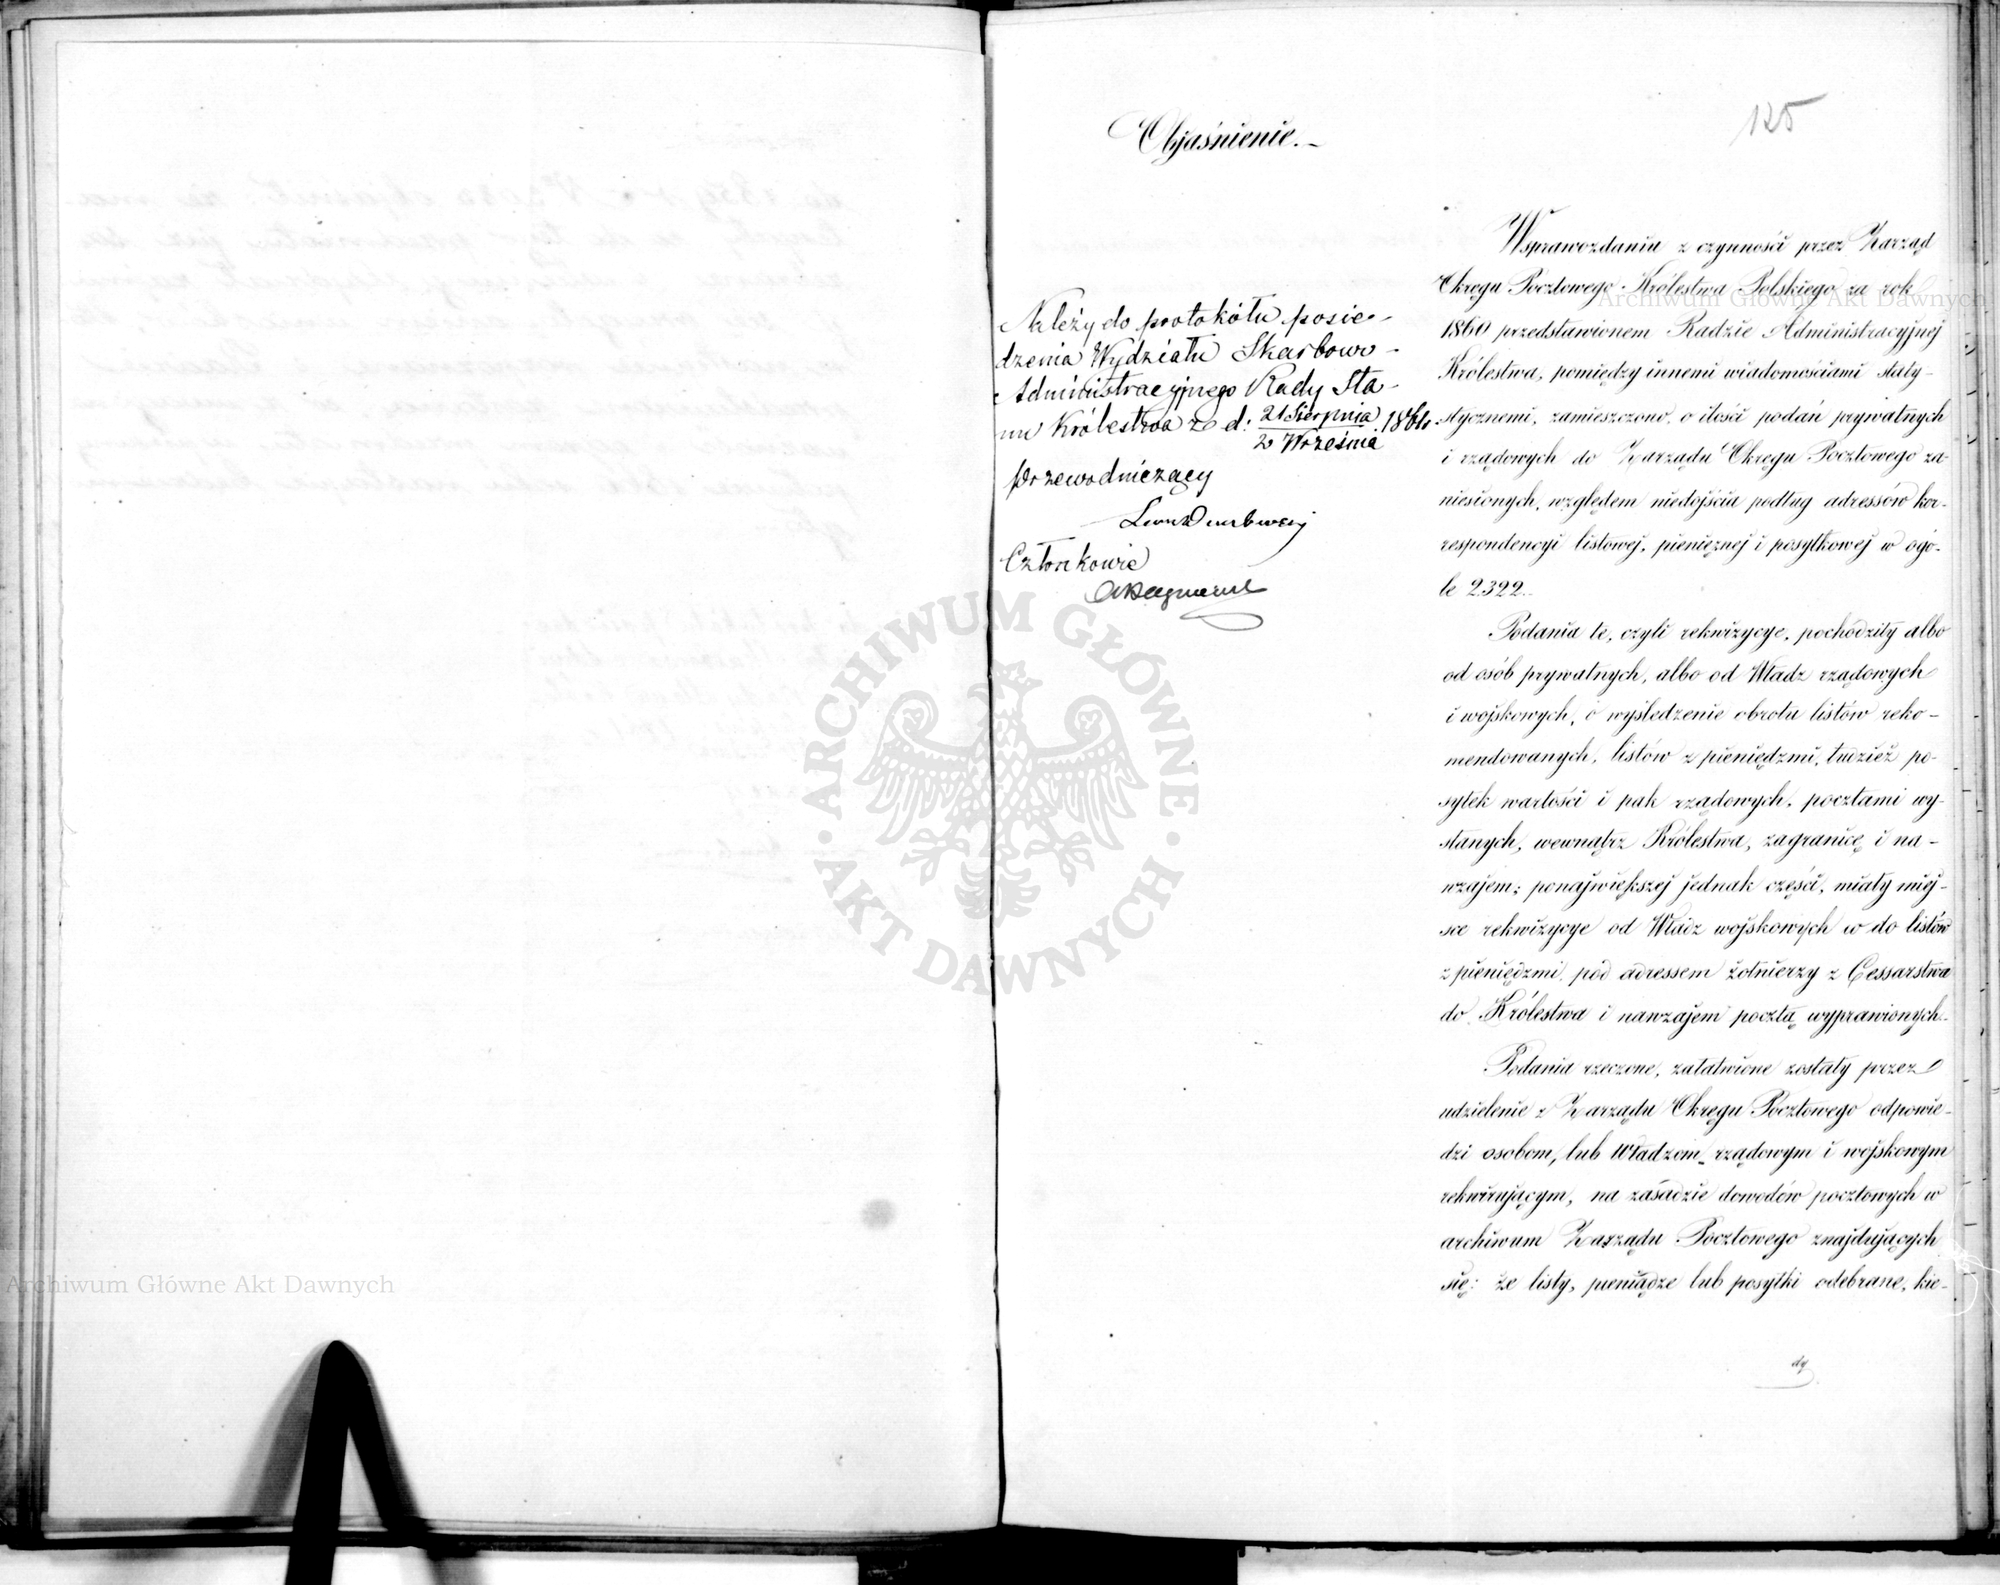 125
Objaśnienie.
Należy do protokółu posie-
dzenia Wydziału Skarbowo-
Administracyjnego Rady Sta-
nu Królestwa z d: 21 Sierpnia / 2 Września 1861 r.
Przewodniczący
Członkowie
W sprawozdaniu z czynności przez Zarząd
Okręgu Pocztowego Królestwa Polskiego za rok
1860 przedstawionem Radzie Administracyjnej
Królestwa, pomiędzy innemi wiadomościami staty-
stycznemi, zamieszczono, o ilości podań prywatnych
i rządowych do Zarządu Okręgu Pocztowego za-
niesionych, względem niedojścia podług adressów kor-
respondencyi listowej, pieniężnej i posyłkowej w ogó-
le 2322.
Podania te, czyli rekwizycye, pochodziły albo
od osób prywatnych, albo od Władz rządowych
i wojskowych, o wyśledzenie obrotu listów reko-
mendowanych, listów z pieniędzmi, tudzież po-
syłek wartości i pak rządowych, pocztami wy-
słanych, wewnątrz Królestwa, zagranicę i na-
wzajem; ponajwiększej jednak części, miały miej-
sce rekwizycye od Władz wojskowych w do listów
z pieniędzmi pod adressem żołnierzy z Cessarstwa
do Królestwa i nawzajem pocztą wyprawionych.
Podania rzeczone, załatwione zostały przez
udzielenie z Zarządu Okręgu Pocztowego odpowie-
dzi osobom, lub Władzom rządowym i wojskowym
rekwirującym, na zasadzie dowodów pocztowych w
archiwum Zarządu Pocztowego znajdujących
się: że listy, pieniądze lub posyłki odebrane, kie-
dy
Archiwum Główne Akt Dawnych
Archiwum Główne Akt Dawnych
ARCHIWUM GŁÓWNE
AKT DAWNYCH